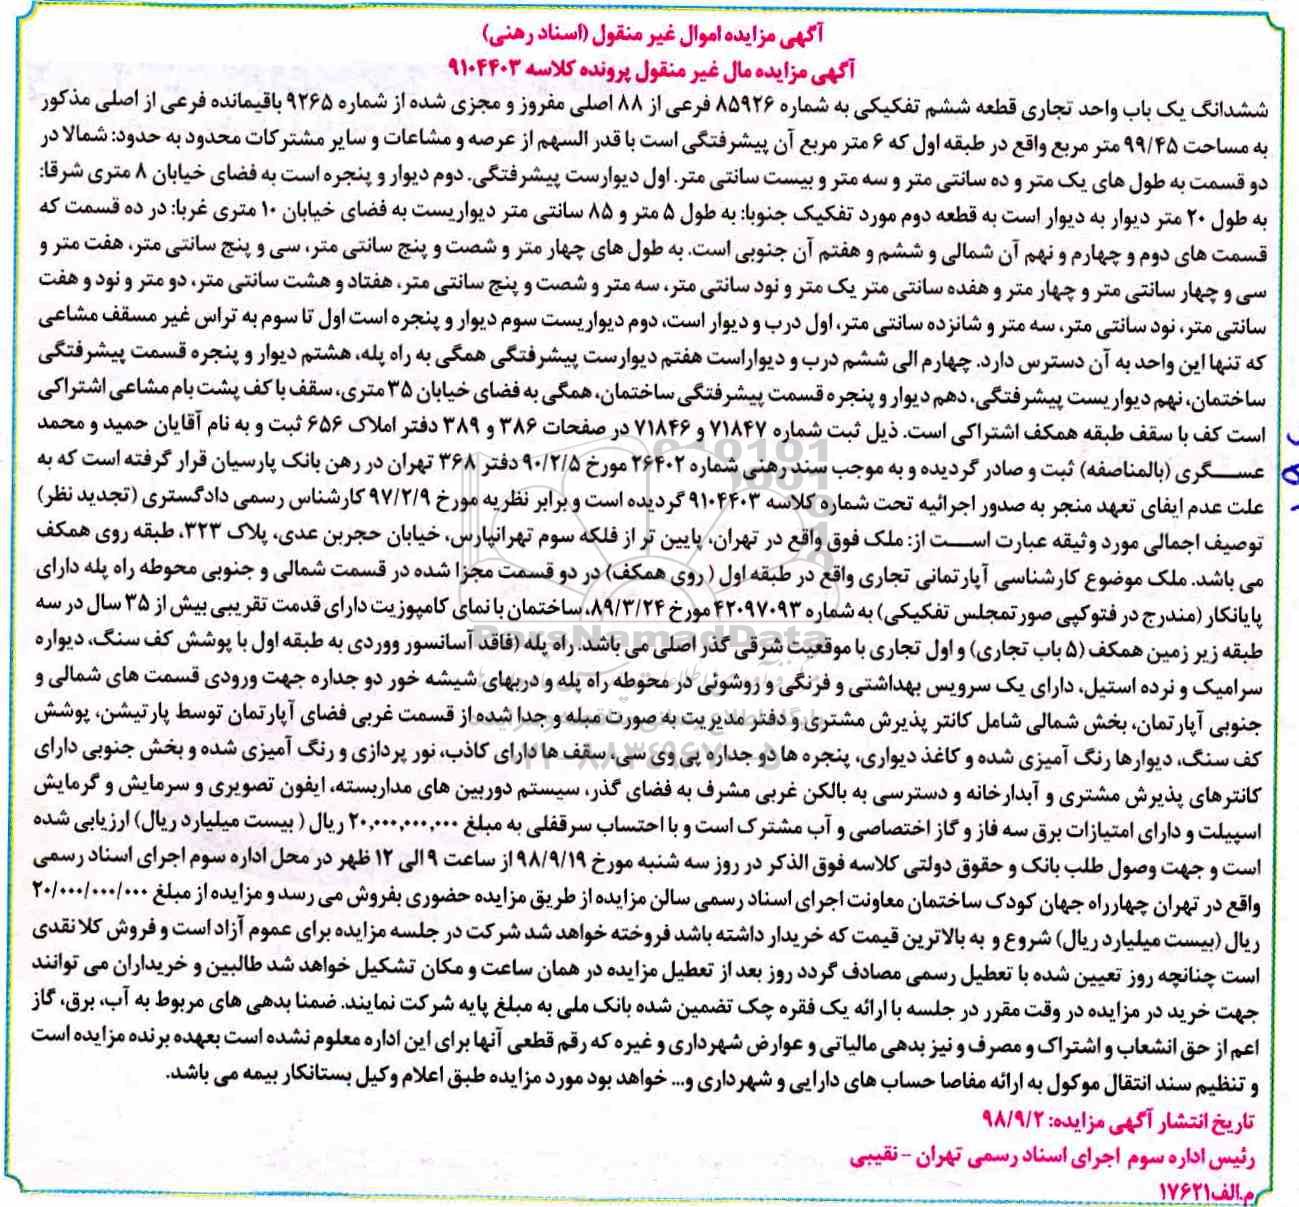 آگهی مزایده اموال غیر منقول (اسناد رهنی)
آگهی مزایده مال غیر منقول پرونده کلاسه ۹۱۰۴۴۰۳
ششدانگ یک باب واحد تجاری قطعه ششم تفکیکی به شماره ۸۵۹۲۶ فرعی از ۸۸ اصلی مفروز و مجزی شده از شماره ۹۲۶۵ باقیمانده فرعی از اصلی مذکور
به مساحت ۹۹/۴۵ متر مربع واقع در طبقه اول که ۶ متر مربع آن پیشرفتگی است با قدر السهم از عرصه و مشاعات و سایر مشترکات محدود به حدود: شمالا در
دو قسمت به طول های یک متر و ده سانتی متر و سه متر و بیست سانتی متر. اول دیوارست پیشرفتگی. دوم دیوار و پنجره است به فضای خیابان ۸ متری شرقا:
به طول ۲۰ متر دیوار به دیوار است به قطعه دوم مورد تفکیک جنوبا: به طول ۵ متر و ۸۵ سانتی متر دیواریست به فضای خیابان ۱۰ متری غربا: در ده قسمت که
قسمت های دوم و چهارم و نهم آن شمالی و ششم و هفتم آن جنوبی است. به طول های چهار متر و شصت و پنج سانتی متر، سی و پنج سانتی متر، هفت متر و
سی و چهار سانتی متر و چهار متر و هفده سانتی متر یک متر و نود سانتی متر، سه متر و شصت و پنج سانتی متر، هفتاد و هشت سانتی متر، دو متر و نود و هفت
سانتی متر، نود سانتی متر، سه متر و شانزده سانتی متر، اول درب و دیوار است، دوم دیواریست سوم دیوار و پنجره است اول تا سوم به تراس غیر مسقف مشاعی
که تنها این واحد به آن دسترس دارد. چهارم الی ششم درب و دیواراست هفتم دیوارست پیشرفتگی همگی به راه پله، هشتم دیوار و پنجره قسمت پیشرفتگی
ساختمان، نهم دیواریست پیشرفتگی، دهم دیوار و پنجره قسمت پیشرفتگی ساختمان، همگی به فضای خیابان ۳۵ متری، سقف با کف پشت بام مشاعی اشتراکی
است کف با سقف طبقه همکف اشتراکی است. ذیل ثبت شماره ۷۱۸۴۷ و ۷۱۸۴۶ در صفحات ۳۸۶ و ۳۸۹ دفتر املاک ۶۵۶ ثبت و به نام آقایان حمید و محمد
عسگری (بالمناصفه) ثبت و صادر گردیده و به موجب سند رهنی شماره ۲۶۴۰۲ مورخ ۹۰/۲/۵ دفتر ۳۶۸ تهران در رهن بانک پارسیان قرار گرفته است که به
علت عدم ایفای تعهد منجر به صدور اجرائیه تحت شماره کلاسه ۹۱۰۴۴۰۳ گردیده است و برابر نظریه مورخ ۹۷/۲/۹ کارشناس رسمی دادگستری (تجدید نظر)
توصیف اجمالی مورد وثیقه عبارت است از: ملک فوق واقع در تهران، پایین تر از فلکه سوم تهرانپارس، خیابان حجربن عدی، پلاک ۳۲۳، طبقه روی همکف
می باشد. ملک موضوع کارشناسی آپارتمانی تجاری واقع در طبقه اول ( روی همکف) در دو قسمت مجزا شده در قسمت شمالی و جنوبی محوطه راه پله دارای
پایانکار (مندرج در فتوکپی صورتمجلس تفکیکی) به شماره ۴۲۰۹۷۰۹۳ مورخ ۸۹/۳/۲۴، ساختمان با نمای کامپوزیت دارای قدمت تقریبی بیش از ۳۵ سال در سه
طبقه زیر زمین همکف (۵ باب تجاری) و اول تجاری با موقعیت شرقی گذر اصلی می باشد. راه پله (فاقد آسانسور ووردی به طبقه اول با پوشش کف سنگ، دیواره
سرامیک و نرده استیل، دارای یک سرویس بهداشتی و فرنگی و روشوئی در محوطه راه پله و دربهای شیشه خور دو جداره جهت ورودی قسمت های شمالی و
جنوبی آپارتمان، بخش شمالی شامل کانتر پذیرش مشتری و دفتر مدیریت به صورت مبله و جدا شده از قسمت غربی فضای آپارتمان توسط پارتیشن، پوشش
کف سنگ، دیوارها رنگ آمیزی شده و کاغذ دیواری، پنجره ها دو جداره پی وی سی، سقف ها دارای کاذب، نور پردازی و رنگ آمیزی شده و بخش جنوبی دارای
کانترهای پذیرش مشتری و آبدارخانه و دسترسی به بالکن غربی مشرف به فضای گذر، سیستم دوربین های مداربسته، ایفون تصویری و سرمایش و گرمایش
اسپیلت و دارای امتیازات برق سه فاز و گاز اختصاصی و آب مشترک است و با احتساب سرقفلی به مبلغ ۲۰,۰۰۰,۰۰۰,۰۰۰ ریال ( بیست میلیارد ریال) ارزیابی شده
است و جهت وصول طلب بانک و حقوق دولتی کلاسه فوق الذکر در روز سه شنبه مورخ ۹۸/۹/۱۹ از ساعت ۹ الی ۱۲ ظهر در محل اداره سوم اجرای اسناد رسمی
واقع در تهران چهارراه جهان کودک ساختمان معاونت اجرای اسناد رسمی سالن مزایده از طریق مزایده حضوری بفروش می رسد و مزایده از مبلغ ۲۰/۰۰۰/۰۰۰/۰۰۰
ریال (بیست میلیارد ریال) شروع و به بالاترین قیمت که خریدار داشته باشد فروخته خواهد شد شرکت در جلسه مزایده برای عموم آزاد است و فروش کلا نقدی
است چنانچه روز تعیین شده با تعطیل رسمی مصادف گردد روز بعد از تعطیل مزایده در همان ساعت و مکان تشکیل خواهد شد طالبین و خریداران می توانند
جهت خرید در مزایده در وقت مقرر در جلسه با ارائه یک فقره چک تضمین شده بانک ملی به مبلغ پایه شرکت نمایند. ضمنا بدهی های مربوط به آب، برق، گاز
اعم از حق انشعاب و اشتراک و مصرف و نیز بدهی مالیاتی و عوارض شهرداری و غیره که رقم قطعی آنها برای این اداره معلوم نشده است بعهده برنده مزایده است
و تنظیم سند انتقال موکول به ارائه مفاصا حساب های دارایی و شهرداری و... خواهد بود مورد مزایده طبق اعلام وکیل بستانکار بیمه می باشد.
تاریخ انتشار آگهی مزایده: ۹۸/۹/۲
رئیس اداره سوم اجرای اسناد رسمی تهران - نقیبی
م.الف ۱۷۶۲۱
ParsNamadData